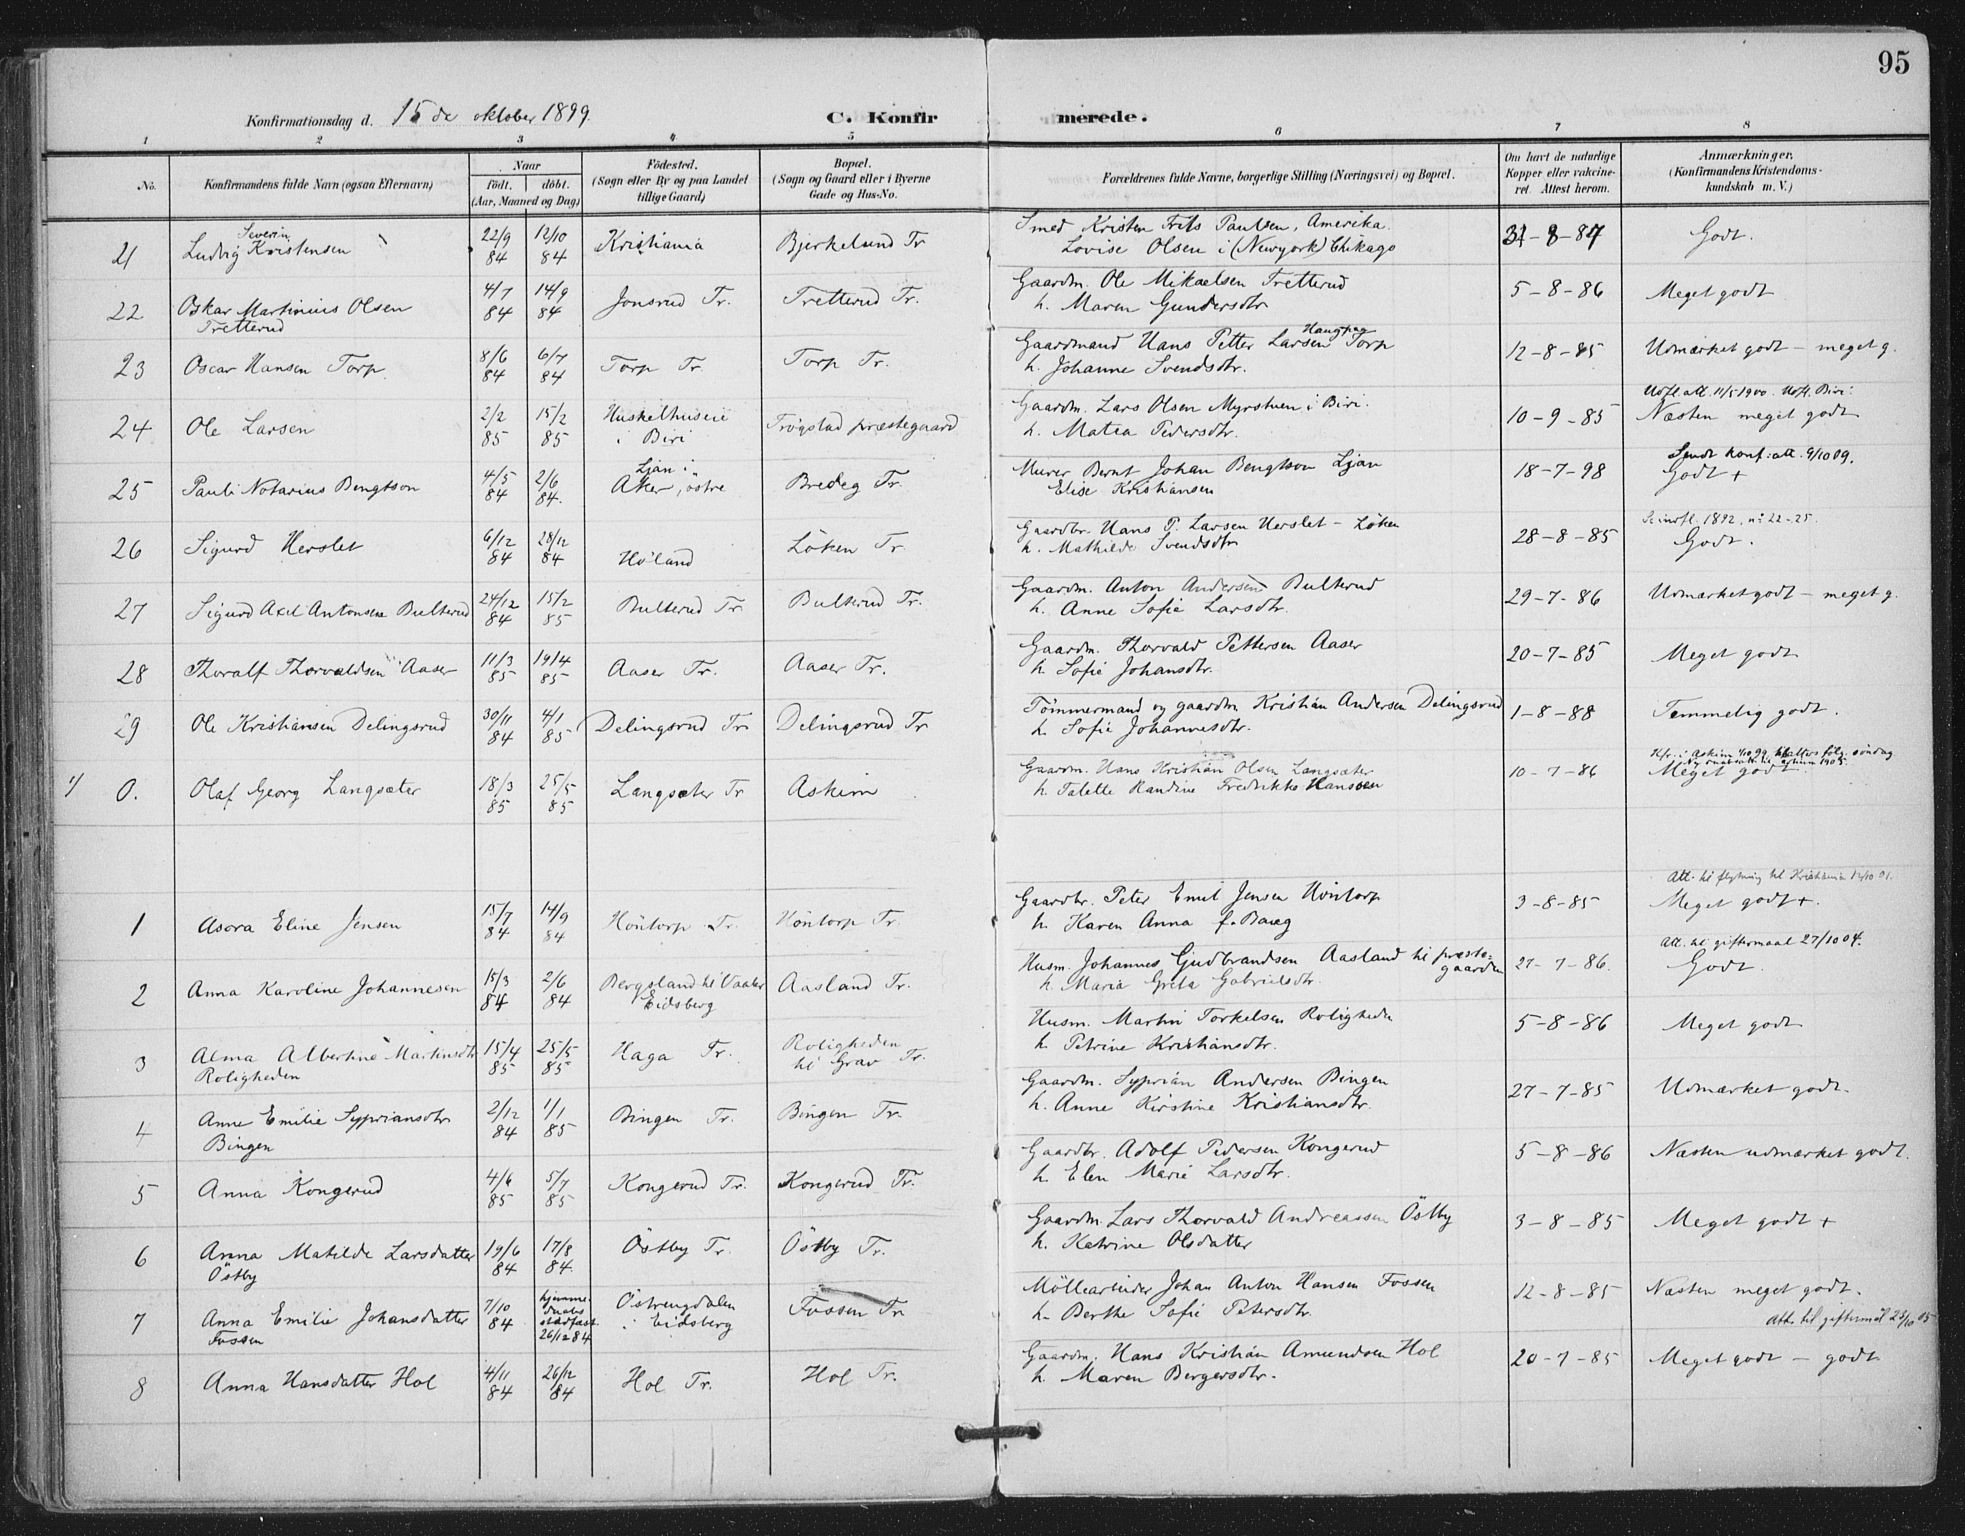 95
Konfirmationsdag d. 15de oktober 1899.
C. Konfirmerede.
1 2 3 4 5 6 7 8
No.
Konfirmandens fulde Navn (ogsaa Efternavn)
Naar
födt. döbt.
(Aar, Maaned og Dag)
Födested.
(Sogn eller By og paa Landet
tillige Gaard)
Bopæl.
(Sogn og Gaard eller i Byerne
Gade og Hus-No.
Forældrenes fulde Navne, borgerlige Stilling (Næringsvei) og Bopæl.
Om havt de naturlige
Kopper eller vakcine-
ret. Attest herom.
Anmærkninger.
(Konfirmandens Kristendoms-
kundskab m. V.)
21 Ludvig Severin Kristensen 22/9 84 12/10 84 Kristiania Bjerkelund Tr Smed Kristen Frits Paulsen, Amerika.
Lovise Olsen i (Newyork) Chikago 31-8-87 Godt.
22 Oskar Martinius Olsen
Tretterud 4/7 84 14/9 84 Jonsrud Tr. Tretterud Tr. Gaardm. Ole Mikaelsen Tretterud
h. Maren Gundersdtr 5-8-86 Meget godt
23 Oscar Hansen Torp 8/6 84 6/7 84 Torp Tr. Torp Tr. Gaardmand Hans Petter Larsen Torp
h. Johanne Svendsdtr. 12-8-85 Udmærket godt - meget g.
24 Ole Larsen 2/2 85 15/2 85 Huskelhuseie
i Biri Trøgstad præstegaard Gaardm. Lars Olsen Myrstuen i Biri.
h. Matea Pedersdtr. 10-9-85 Udfl. att. 11/5 1900. Udfl. Biri.
Næsten meget godt
25 Pauli Notarius Bengtson 4/5 84 2/6 84. Ljan i
Aker, östre Bredeg Tr. Murer Bernt Johan Bengtson Ljan
Elise Kristiansen 18-7-98 Sendt konf. att. 9/10 09.
Godt +
26 Sigurd Herslet 6/12 84 28/12 84 Höland Löken Tr. Gaardbr. Hans P. Larsen Herslet - Löken
h. Mathilde Svendsdtr 28-8-85 Se indfl. 1892, nº 22-25.
Godt.
27 Sigurd Axel Antonsen Bulterud 24/12 84 15/2 85 Bulterud Tr. Bulterud Tr. Gaardm. Anton Andersen Bulterud
h. Anne Sofie Larsdtr. 29-7-86 Udmærket godt - meget g.
28 Thoralf Thorvaldsen Aaser 11/3 85 19/4 85 Aaser Tr. Aaser Tr. Gaardm. Thorvald Pettersen Aaser
h. Sofie Johansdtr. 20-7-85 Meget godt
29 Ole Kristiansen Delingsrud 30/11 84 4/1 85 Delingsrud Tr. Delingsrud Tr Tömmermand og gaardm Kristian Andersen Delingsrud
h. Sofie Johannesdtr. 1-8-88 Temmelig godt.
1/ 0. Olaf Georg Langsæter 18/3 85 25/5 85 Langsæter Tr Askim Gaardm. Hans Kristian Olsen Langsæter
h. Talette Randine Fredrikke Hanssen 10-7-86 Kfr. i Askim
Meget godt
1 Asora Eline Jensen 15/7 84 14/9 84 Höntorp Tr. Höntorp Tr. Gaardbr. Peter Emil Jensen Höntorp
h. Karen Anna f. Baug 3-8-85 Att. til flytning til Kristiania 12/10 01.
Meget godt +.
2 Anna Karoline Johannesen 15/3 84 2/6 84 Bergsland til Vaaler
Eidsberg Aasland Tr. Husm. Johannes Gudbrandsen Aasland til præste-
gaarden
h. Maria Greta Gabrielsdtr. 27-7-86. Att. til giftermaal 27/10 04.
Godt.
3 Alma Albertine Martinsdtr
Roligheden 15/4 85 25/5 85 Haga Tr. Roligheden
til Grav Tr. Husm. Martin Torkelsen Roligheden
h. Petrine Kristiansdtr. 5-8-86 Meget godt
4 Anne Emilie Sypriansdtr
Bingen 2/12 84 1/1 85 Bingen Tr. Bingen Tr. Gaardm. Syprian Andersen Bingen
h. Anne Kirstine Kristiansdtr. 27-7-85 Udmærket godt.
5 Anna Kongerud 4/6 85 5/7 85 Kongerud Tr. Kongerud Tr. Gaardbr. Adolf Pedersen Kongerud
h. Elen Marie Larsdtr. 5-8-86 Næsten udmærket godt.
6 Anna Matilde Larsdatter
Östby 19/6 84 17/8 84. Östby Tr. Östby Tr. Gaardm. Lars Thorvald Andreassen Östby
h. Katrine Olsdatter 3-8-85 Meget godt +
7 Anna Emilie Johansdatter
Fossen 7/10 84 hjemme-
daabs
stadfæst
26/12 84 Östrengdalen
i Eidsberg Fossen Tr. Möllearbeider Johan Anton Hansen Fossen
h. Berthe Sofie Petersdtr. 12-8-85 Næsten meget godt.
Att. til giftermål 23/10 05
8 Anna Hansdatter Hol 4/11 84 26/12 84 Hol Tr. Hol Tr. Gaardm. Hans Kristian Amundsen Hol
h. Maren Bergersdtr. 20-7-85 Meget godt - godt